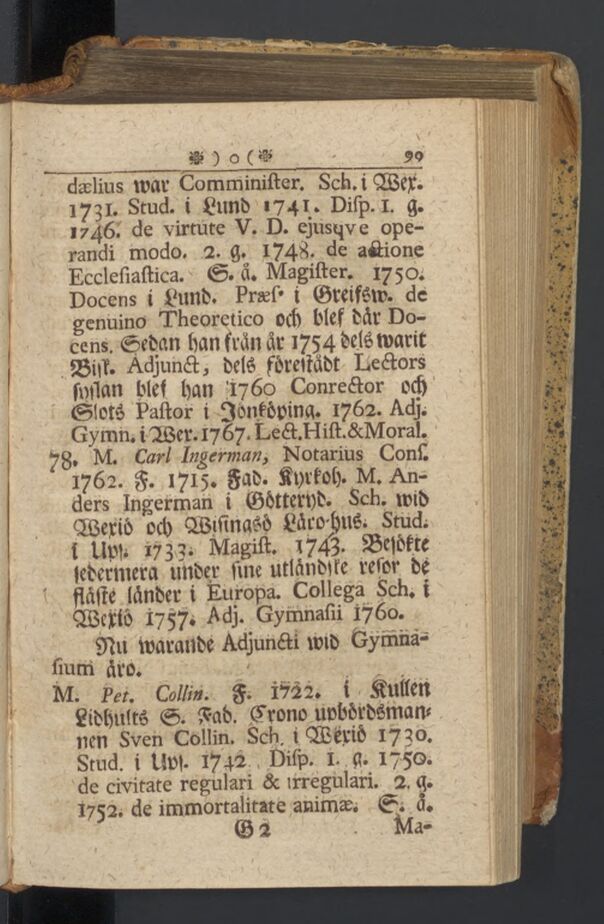 ❉ ) o ( ❉ 99
dælius war Comminister. Sch. i Wex.
1731. Stud. i Lund 1741. Disp. 1. g.
1746. de virtute V. D. ejusqve ope-
randi modo. 2. g. 1748. de actione
Ecclesiastica. S. å. Magister. 1750.
Docens i Lund. Præs. i Greifsw. de
genuino Theoretico och blef där Do-
cens. Sedan han från år 1754 dels warit
Bisk. Adjunct, dels förestådt Lectors
syslan blef han 1760 Conrector och
Slots Pastor i Jönköping. 1762. Adj.
Gymn. i Wex. 1767. Lect. Hist. & Moral.
78. M. Carl Ingerman, Notarius Cons.
1762. F. 1715. Fad. Kyrkoh. M. An-
ders Ingerman i Götteryd. Sch. wid
Wexiö och Wisingsö Läro-hus. Stud.
i Ups. 1733. Magist. 1743. Besökte
sedermera under sine utländske resor de
fläste länder i Europa. Collega Sch. i
Wexiö 1757. Adj. Gymnasii 1760.
Nu warande Adjuncti wid Gymna-
sium äro.
M. Pet. Collin. F. 1722. i Kullen
Lidhults S. Fad. Crono upbördsman-
nen Sven Collin. Sch. i Wexiö 1730.
Stud. i Ups. 1742. Disp. 1. g. 1750.
de civitate regulari & irregulari. 2. g.
1752. de immortalitate animæ. S. å.
G 2 Ma-